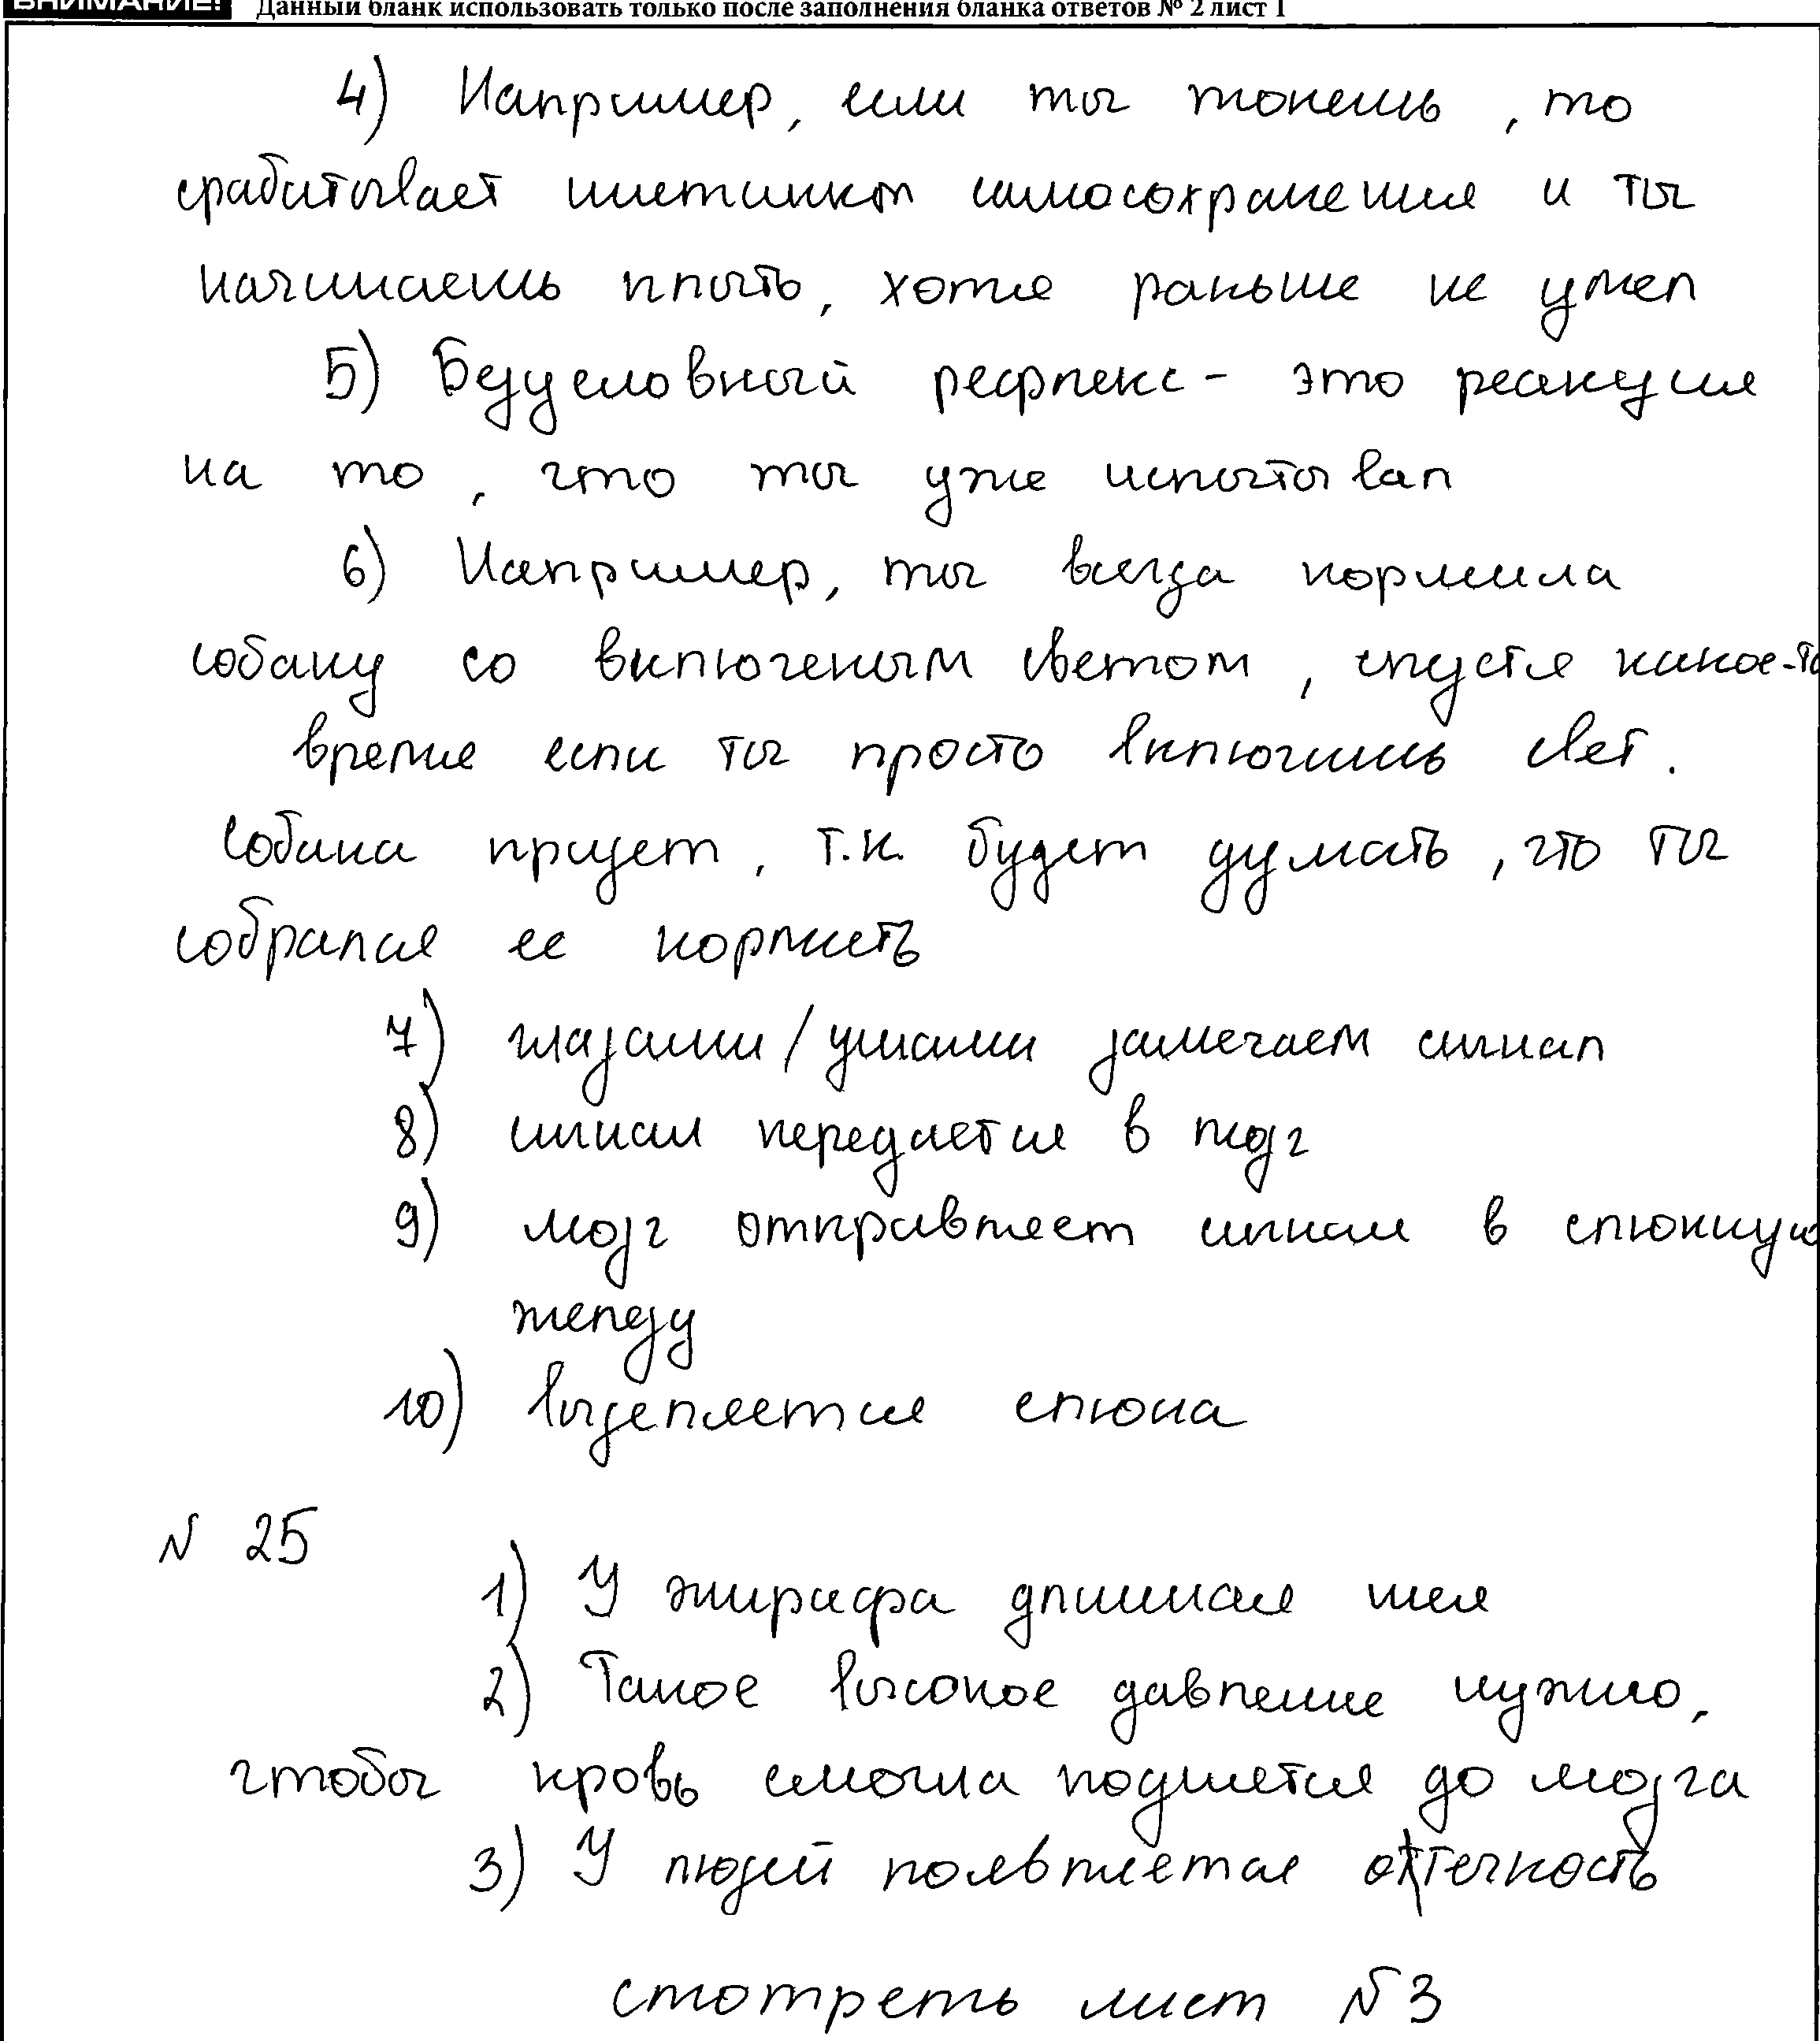 ВНИМАНИЕ! Данный бланк использовать только после заполнения бланка ответов № 2 лист 1
4) Например, если ты тонешь, то
срабытывает инстинкт самосохранения и ты
начинаешь плыть, хотя раньше не умел
5) Безусловный рефлекс - это реакция
на то, что ты уже испытывал
6) Например, ты всегда кормила
собаку со включеным светом, спустя какое-то
время если ты просто включишь свет.
Собака придет, т.к. будет думать, что ты
собрался ее кормить
7) глазами/ушами замечаем сигнал
8) сигнал передается в мозг
9) мозг отправляет сигнал в слюнную
железу
10) выделяется слюна
N 25
1) У жирафа длинная шея
2) Такое высокое давление нужно,
чтобы кровь смогла поднятся до мозга
3) У людей появляется отечность
смотреть лист N3